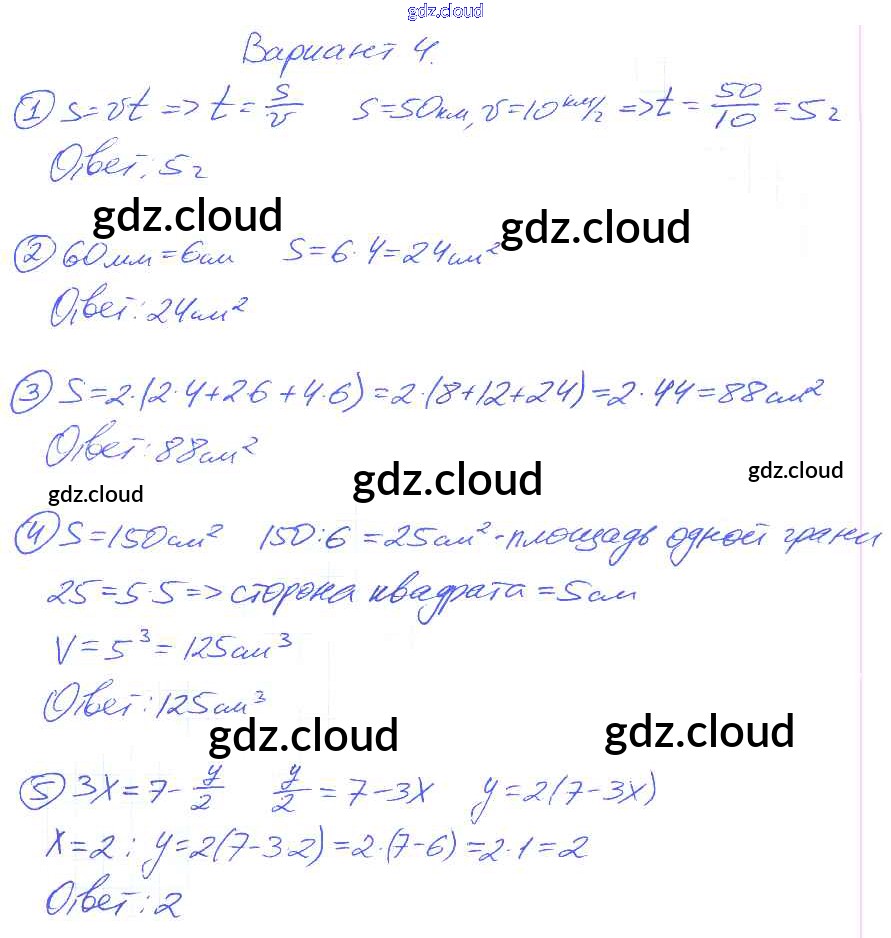 gdz.cloud
Вариант 4.
1 S=vt => t = s/v S=50км, v=10 км/г => t = 50/10 = 5г
Ответ: 5г
gdz.cloud gdz.cloud
2 60мм=6см S=6·4=24см²
Ответ: 24см²
3 S=2·(2·4+2·6+4·6)=2·(8+12+24)=2·44=88см²
Ответ: 88см²
gdz.cloud gdz.cloud gdz.cloud
4 S=150см² 150:6=25см²-площадь одной грани
25=5·5=> сторона квадрата=5см
V=5³=125см³
Ответ: 125см³
gdz.cloud gdz.cloud
5 3x=7-y/2 y/2=7-3x y=2(7-3x)
x=2: y=2(7-3·2)=2·(7-6)=2·1=2
Ответ: 2